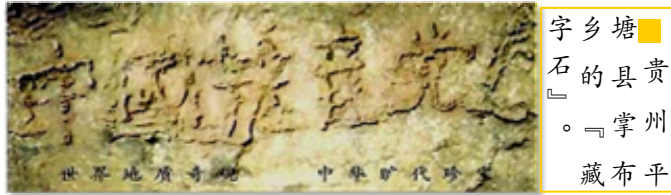 中國共産党亡
世界地质奇观 中华旷代珍宝
贵州平
塘县掌布
乡的『藏
字石』。